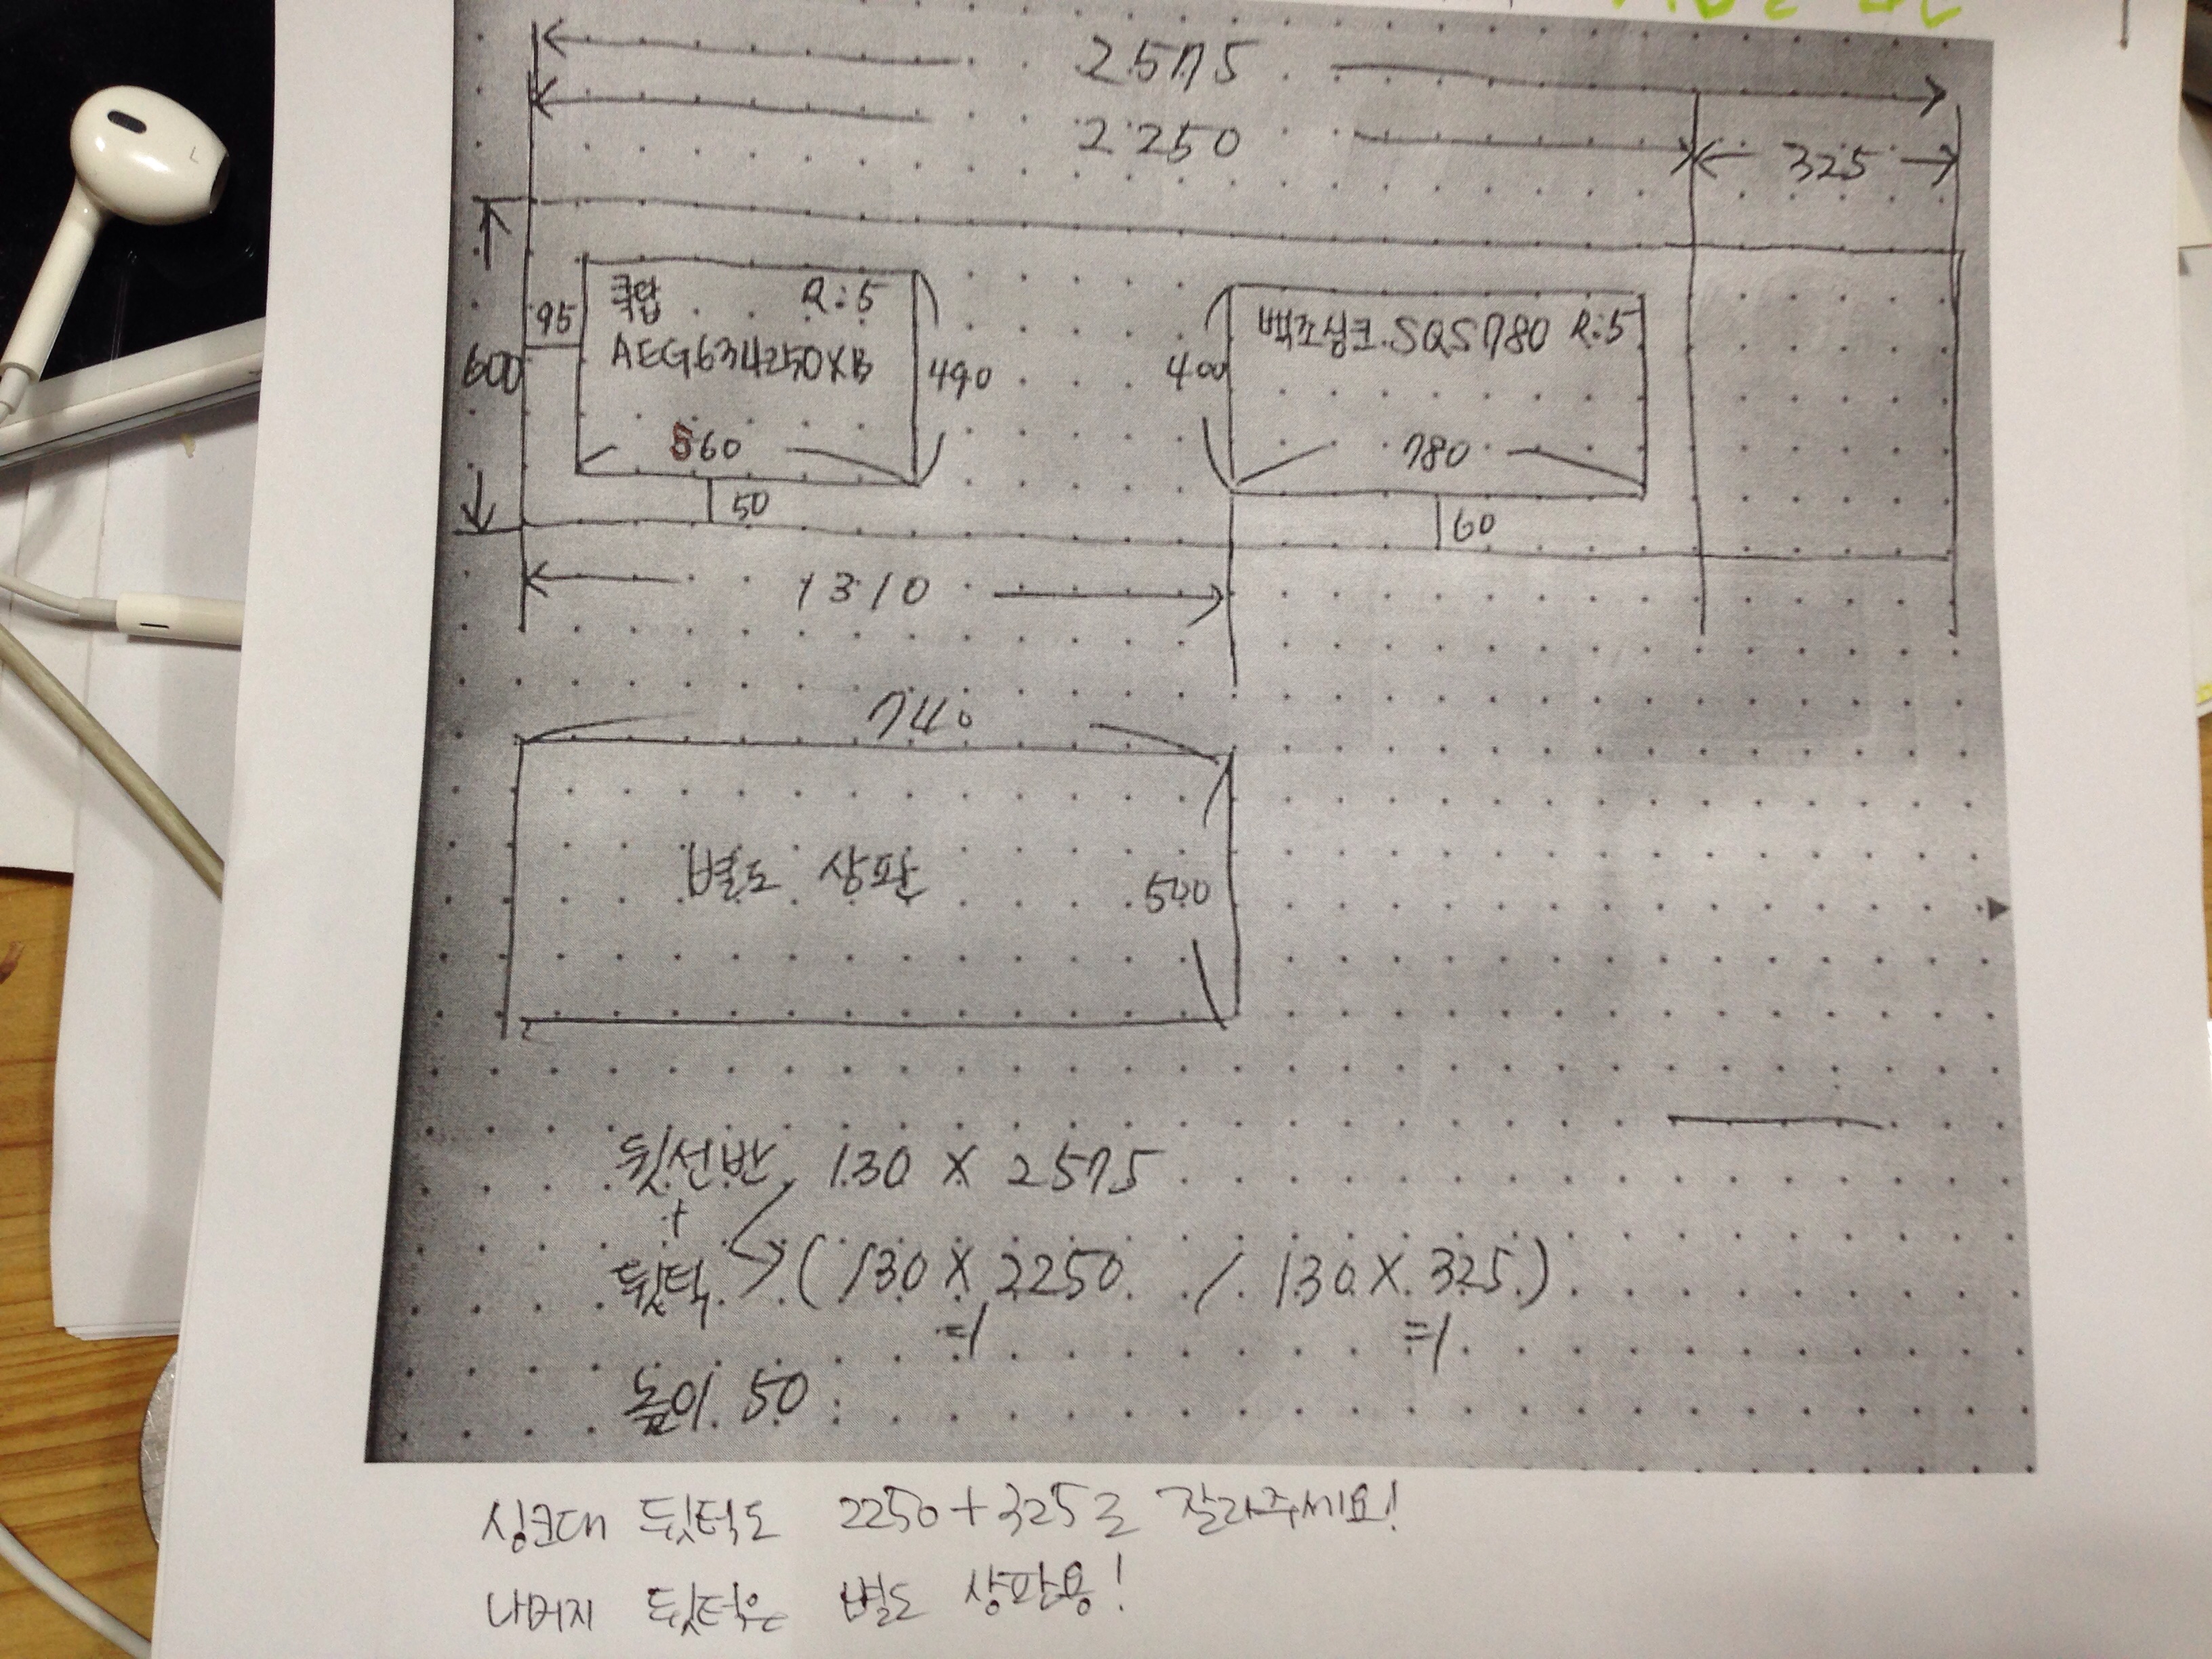 2575
2250
325
95
쿡탑 R:5
AEG634250XB
560
600
490
50
400
백조싱크.SQS780 R:5
780
60
1310
740
별도 상판
500
뒷선반 130 X 2575
+
뒷턱 (130 X 2250 / 130 X 325)
=1 =1
높이 50
싱크대 뒷턱도 2250+325로 잘라주세요!
나머지 뒷턱은 별도 상판용!
L